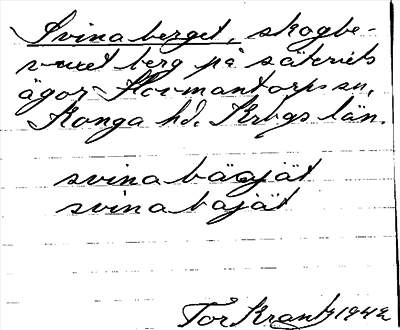 Svinaberget, skogbe-
vuxet berg på säteriets
ägor Hovmantorps sn,
Konga hd. Krbgs län.
svinabärjät
svinabajät
Tor Krantz 1942